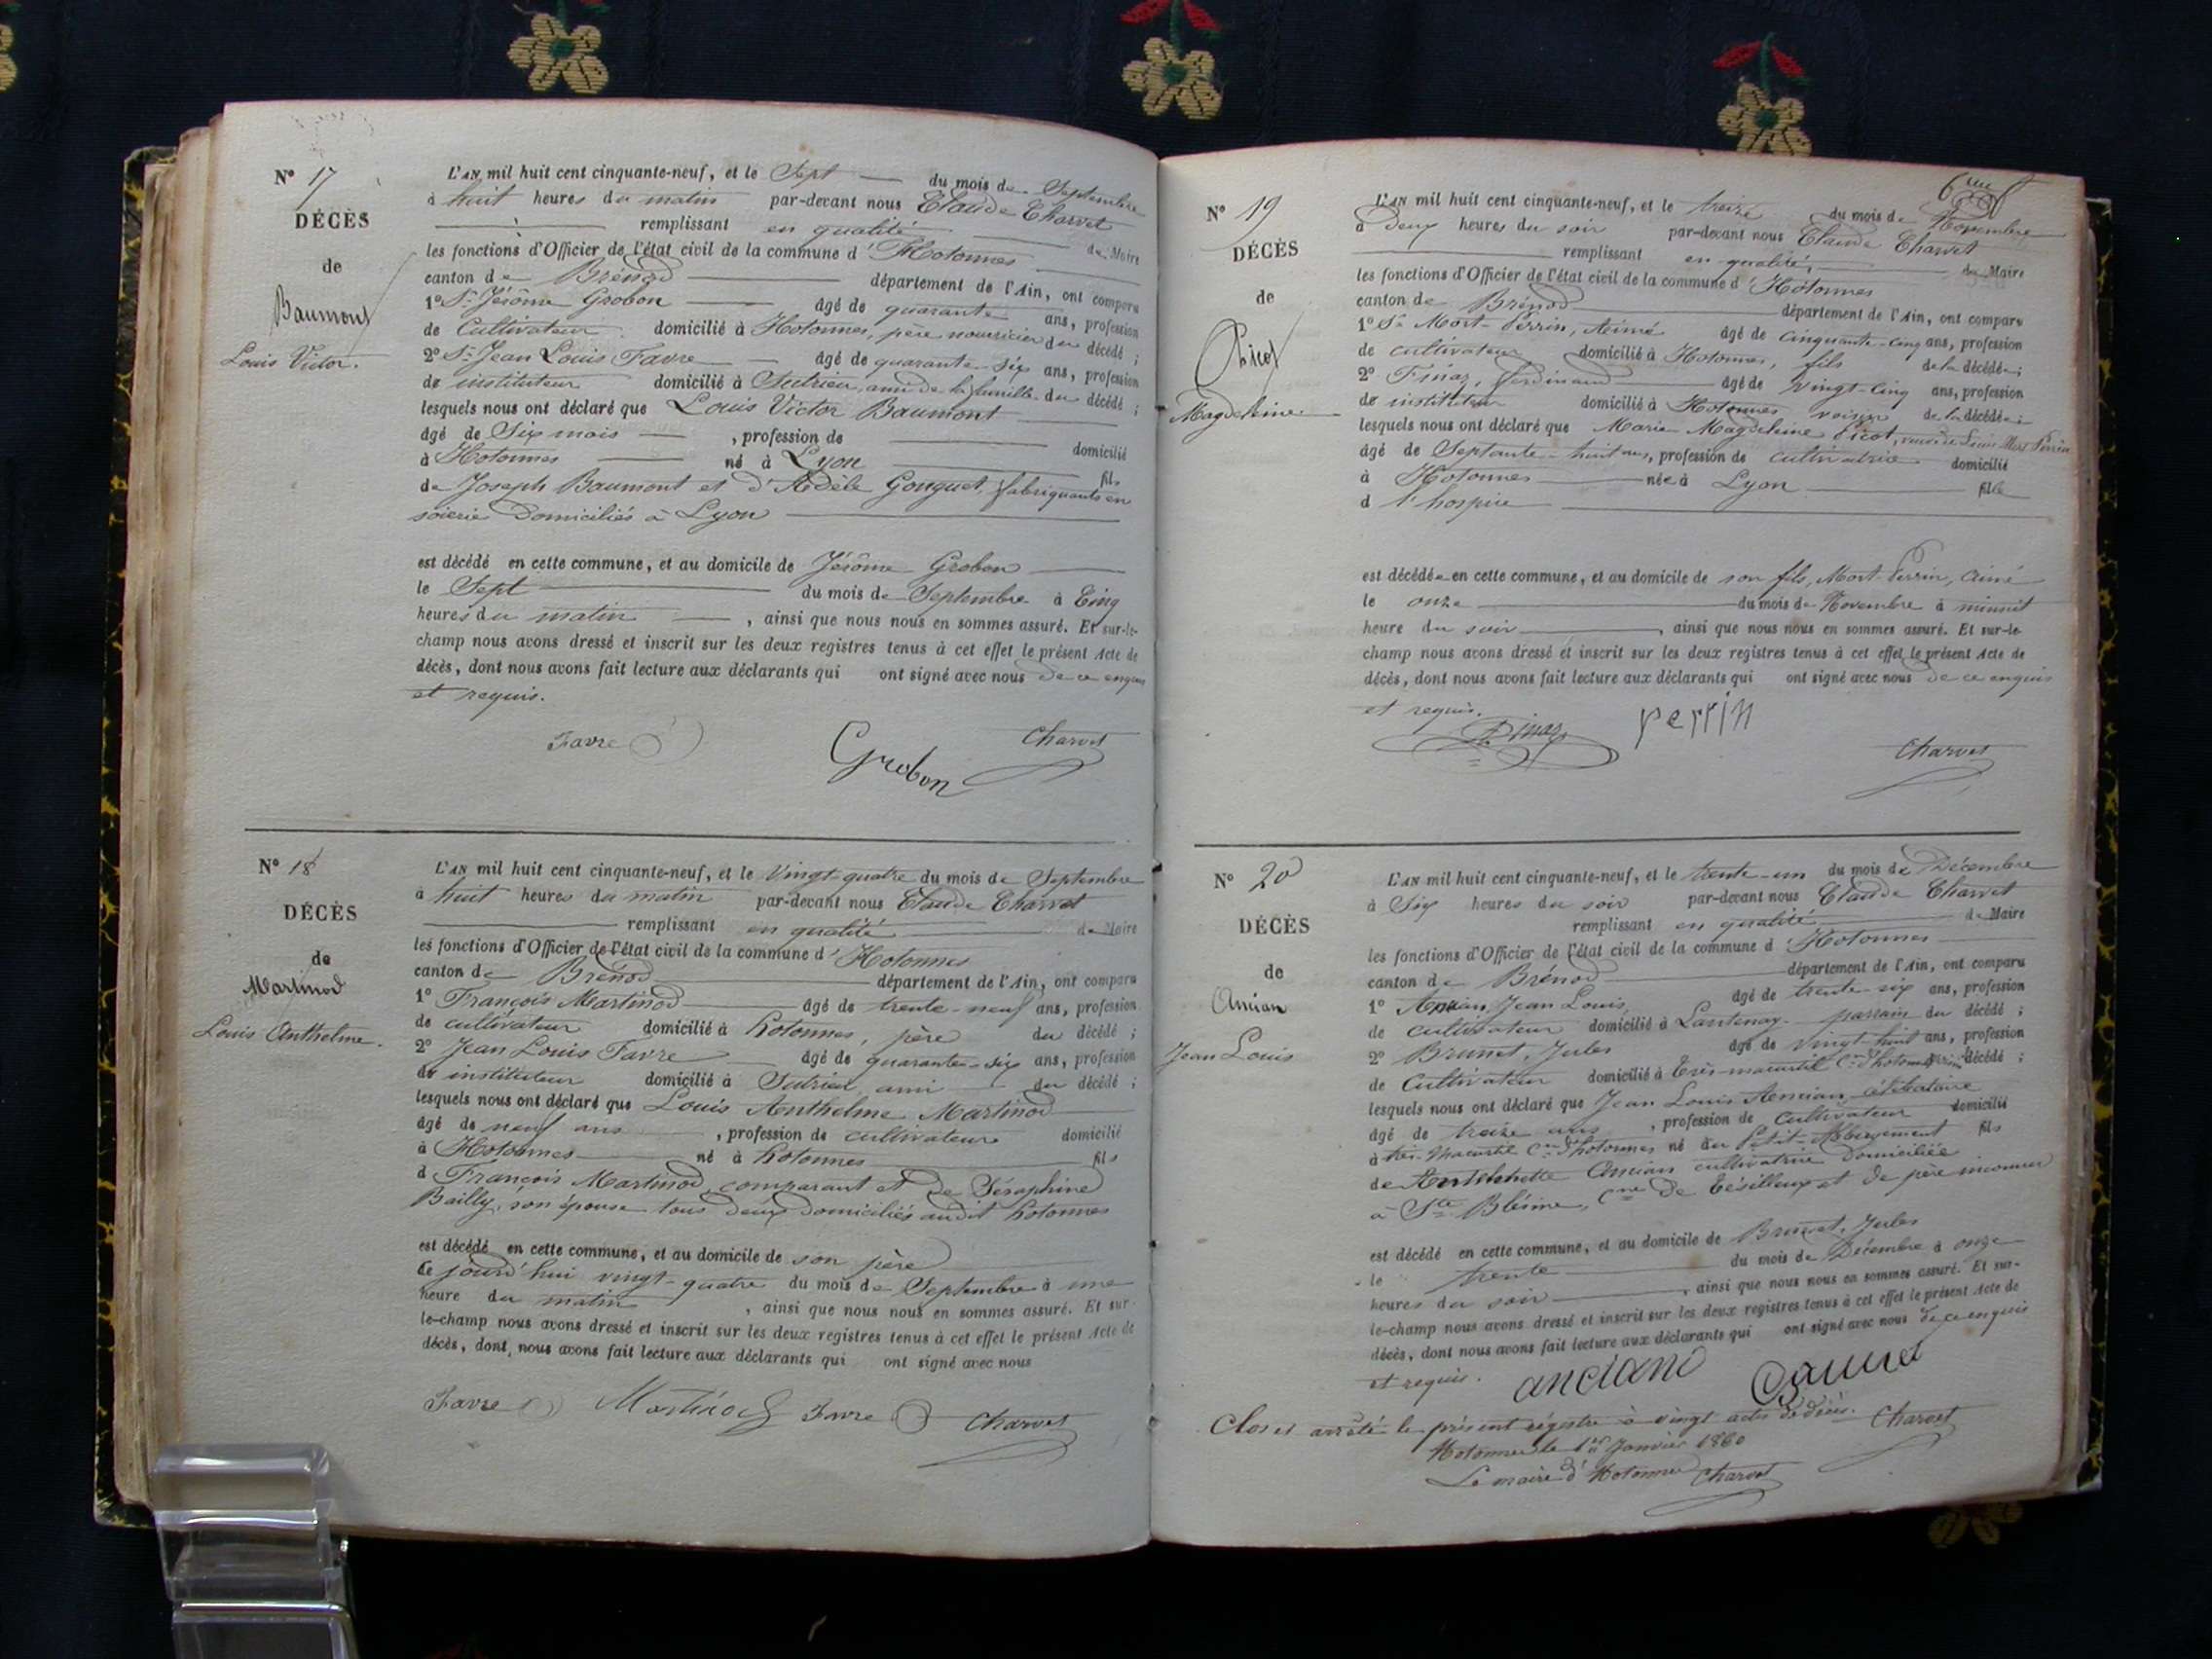 N° 17
DÉCÈS
de
Baumont
Louis Victor.
L'AN mil huit cent cinquante-neuf, et le Sept du mois de Septembre
à huit heures du matin par-devant nous Claude Charvet
remplissant en qualité de Maire
les fonctions d'Officier de l'état civil de la commune d'Hotonnes
canton de Brénod département de l'Ain, ont comparu
1° Sr Jérôme Grobon âgé de quarante ans, profession
de Cultivateur domicilié à Hotonnes, père nourricier du décédé ;
2° Sr Jean Louis Favre âgé de quarante-six ans, profession
de instituteur domicilié à Sutrieu, ami de la famille du décédé ;
lesquels nous ont déclaré que Louis Victor Baumont
âgé de Six mois , profession de domicilié
à Hotonnes né à Lyon fils
de Joseph Baumont et d'Adèle Gouguet, fabriquants en
soierie domiciliés à Lyon
est décédé en cette commune, et au domicile de Jérôme Grobon
le Sept du mois de Septembre à Cinq
heures du matin , ainsi que nous nous en sommes assuré. Et sur-le-
champ nous avons dressé et inscrit sur les deux registres tenus à cet effet le présent Acte de
décès, dont nous avons fait lecture aux déclarants qui ont signé avec nous de ce enquis
et requis.
Favre Grobon Charvet
N° 18
DÉCÈS
de
Martinod
Louis Anthelme.
L'AN mil huit cent cinquante-neuf, et le Vingt-quatre du mois de Septembre
à huit heures du matin par-devant nous Claude Charvet
remplissant en qualité de Maire
les fonctions d'Officier de l'état civil de la commune d'Hotonnes
canton de Brénod département de l'Ain, ont comparu
1° François Martinod âgé de trente-neuf ans, profession
de cultivateur domicilié à hotonnes, père du décédé ;
2° Jean Louis Favre âgé de quarante-six ans, profession
de instituteur domicilié à Sutrieu ami du décédé ;
lesquels nous ont déclaré que Louis Anthelme Martinod
âgé de neuf ans , profession de cultivateur domicilié
à Hotonnes né à hotonnes fils
d François Martinod, comparant et de Séraphine
Bailly, son épouse tous deux domiciliés audit hotonnes
est décédé en cette commune, et au domicile de son père
le jourd'hui vingt-quatre du mois de Septembre à une
heure du matin , ainsi que nous nous en sommes assuré. Et sur-
le-champ nous avons dressé et inscrit sur les deux registres tenus à cet effet le présent Acte de
décès, dont nous avons fait lecture aux déclarants qui ont signé avec nous
Favre Martinod Favre Charvet
N° 19
DÉCÈS
de
Picot
Magdeleine
L'AN mil huit cent cinquante-neuf, et le treize du mois de Novembre
à Deux heures du soir par-devant nous Claude Charvet
remplissant en qualité, de Maire
les fonctions d'Officier de l'état civil de la commune d'Hotonnes
canton de Brénod département de l'Ain, ont comparu
1° Sr Mort-Perrin, Aimé âgé de cinquante-cinq ans, profession
de cultivateur domicilié à Hotonnes, fils de la décédée ;
2° Finaz, ferdinand âgé de vingt-cinq ans, profession
de instituteur domicilié à Hotonnes voisin de la décédée ;
lesquels nous ont déclaré que Marie Magdeleine Picot, veuve de Louis Mort Perrin
âgé de Septante-huit ans, profession de cultivatrice domicilié
à Hotonnes née à Lyon fille
d l'hospice
est décédée en cette commune, et au domicile de son fils, Mort-Perrin, Aimé
le onze du mois de Novembre à minuit
heure du soir , ainsi que nous nous en sommes assuré. Et sur-le-
champ nous avons dressé et inscrit sur les deux registres tenus à cet effet le présent Acte de
décès, dont nous avons fait lecture aux déclarants qui ont signé avec nous de ce enquis
et requis.
Finaz perrin Charvet
N° 20
DÉCÈS
de
Ancian
Jean Louis
L'AN mil huit cent cinquante-neuf, et le trente-un du mois de Décembre
à Six heures du soir par-devant nous Claude Charvet
remplissant en qualité de Maire
les fonctions d'Officier de l'état civil de la commune d'Hotonnes
canton de Brénod département de l'Ain, ont comparu
1° Ancian, Jean Louis, âgé de trente-six ans, profession
de cultivateur domicilié à Lantenay parrain du décédé ;
2° Brunet, Jules âgé de vingt-huit ans, profession
de Cultivateur domicilié à d'hotonnes décédé ;
lesquels nous ont déclaré que Jean Louis Ancian célibataire
âgé de treize ans , profession de Cultivateur domicilié
à d'hotonnes né au Petit-Abergement fils
de Ancian cultivatrice domiciliée
à Ste Blésine, Cne de et de père inconnu
est décédé en cette commune, et au domicile de Brunet, Jules
le trente du mois de Décembre à onze
heures du soir , ainsi que nous nous en sommes assuré. Et sur-
le-champ nous avons dressé et inscrit sur les deux registres tenus à cet effet le présent Acte de
décès, dont nous avons fait lecture aux déclarants qui ont signé avec nous de ce enquis
et requis. anciand Brunet
Clos et arrêté le présent régistre à vingt actes de décès. Charvet
Hotonnes le 1er Janvier 1860
Le maire d'Hotonnes Charvet